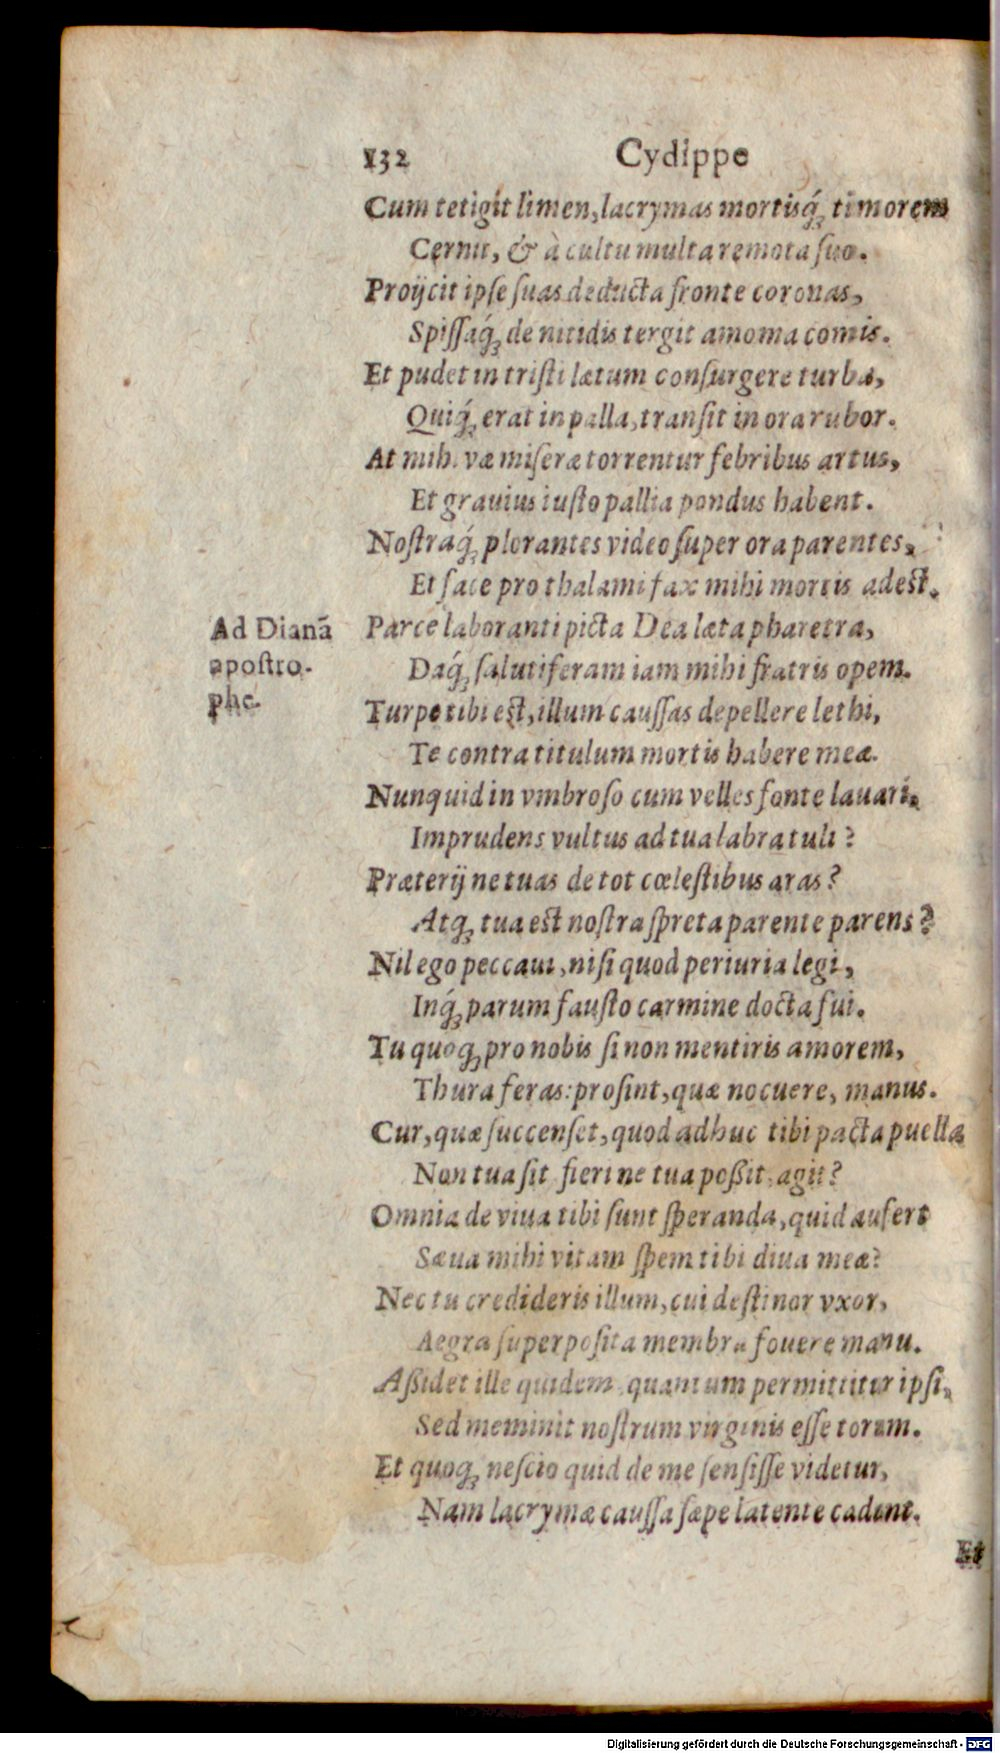 132 Cydippe
Cum tetigit limen, lacrymas mortisq́; timorem
Cernit, & à cultu multa remota suo.
Proijcit ipse suas deducta fronte coronas,
Spissaq́; de nitidis tergit amoma comis.
Et pudet in tristi lætum consurgere turba,
Quiq́; erat in palla, transit in ora rubor.
At mihi væ miseræ torrentur febribus artus,
Et grauius iusto pallia pondus habent.
Nostraq́; plorantes video super ora parentes,
Et face pro thalami fax mihi mortis adest.
Ad Dianã
apostro-
phe.
Parce laboranti picta Dea læta pharetra,
Daq́; salutiferam iam mihi fratris opem.
Turpe tibi est, illum caussas depellere lethi,
Te contra titulum mortis habere meæ.
Nunquid in vmbroso cum velles fonte lauari,
Imprudens vultus ad tua labra tuli?
Præterij ne tuas de tot cœlestibus aras?
Atq; tua est nostra spreta parente parens?
Nil ego peccaui, nisi quod periuria legi,
Inq́; parum fausto carmine docta fui.
Tu quoq; pro nobis si non mentiris amorem,
Thura feras: prosint, quæ nocuere, manus.
Cur, quæ succenset, quod adhuc tibi pacta puella
Non tua sit fieri ne tua possit, agit?
Omnia de viua tibi sunt speranda, quid aufert
Sæua mihi vitam spem tibi diua meæ?
Nec tu credideris illum, cui destinor vxor,
Aegra superposita membra fouere manu.
Assidet ille quidem quantum permittitur ipsi,
Sed meminit nostrum virginis esse torum.
Et quoq; nescio quid de me sensisse videtur,
Nam lacrymæ caussa sæpe latente cadunt.
Et
Digitalisierung gefördert durch die Deutsche Forschungsgemeinschaft - DFG